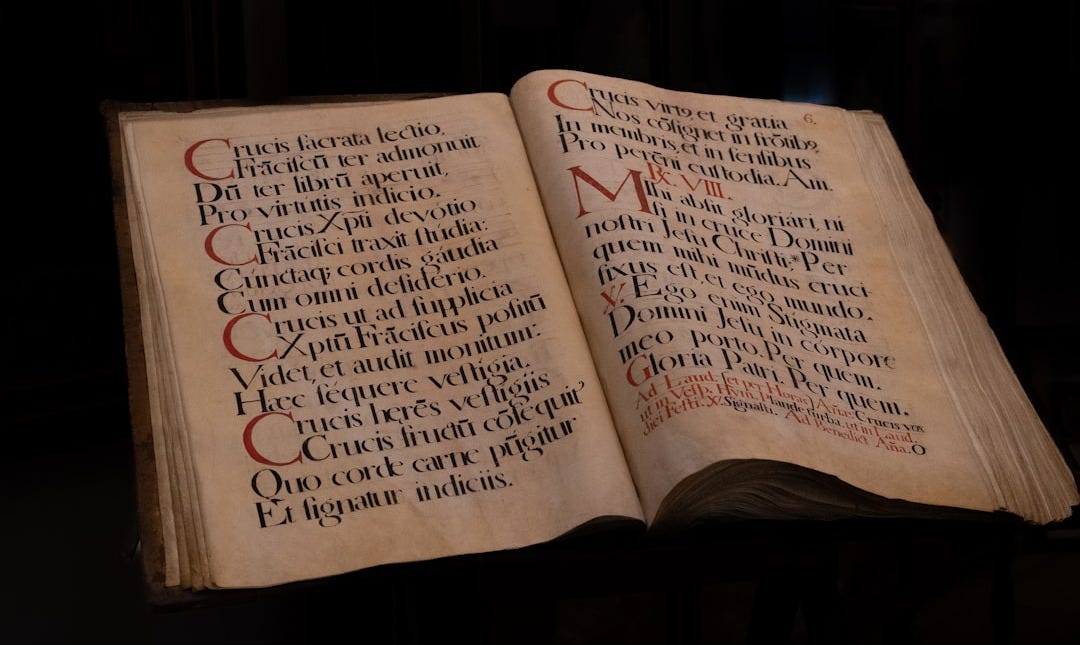 Crucis ſacrata lectio,
Frãciſcũ ter admonuit
Dũ ter librũ aperuit,
Pro virtutis indicio.
Crucis Xpti devotio
Frãciſci traxit ſtudia:
Cunctaq; cordis gáudia
Cum omni deſiderio.
Crucis ut ad ſupplicia
Xptũ Frãciſcus poſitũ
Videt, et audit monitum:
Hæc ſéquere veſtigia.
Crucis herẽs veſtigiis
Crucis fructũ cõſequit'
Quo corde carne pũgitur
Et ſignatur indiciis.
Crucis virtꝰ, et gratia
6.
Nos cõſignet in frõtibꝰ,
In membris, et in ſenſibus
Pro perẽni cuſtodia. Am.
℟. VIII.
Mihi abſit gloriári, ni
ſi in cruce Domini
noſtri Jeſu Chriſti;* Per
quem mihi mũdus cruci
fixus eſt, et ego mundo.
℣. Ego enim Stigmata
Domini Jeſu in córpore
meo porto. Per quem.
Gloria Patri. Per quem.
Ad Laud. ſet per Horas) Añæ: Crucis vox
ut in Veſp. Hym. Plaude turba. ut in Laud.
diei Feſti. ℣. Signaſti. Ad Benedict. Aña. O